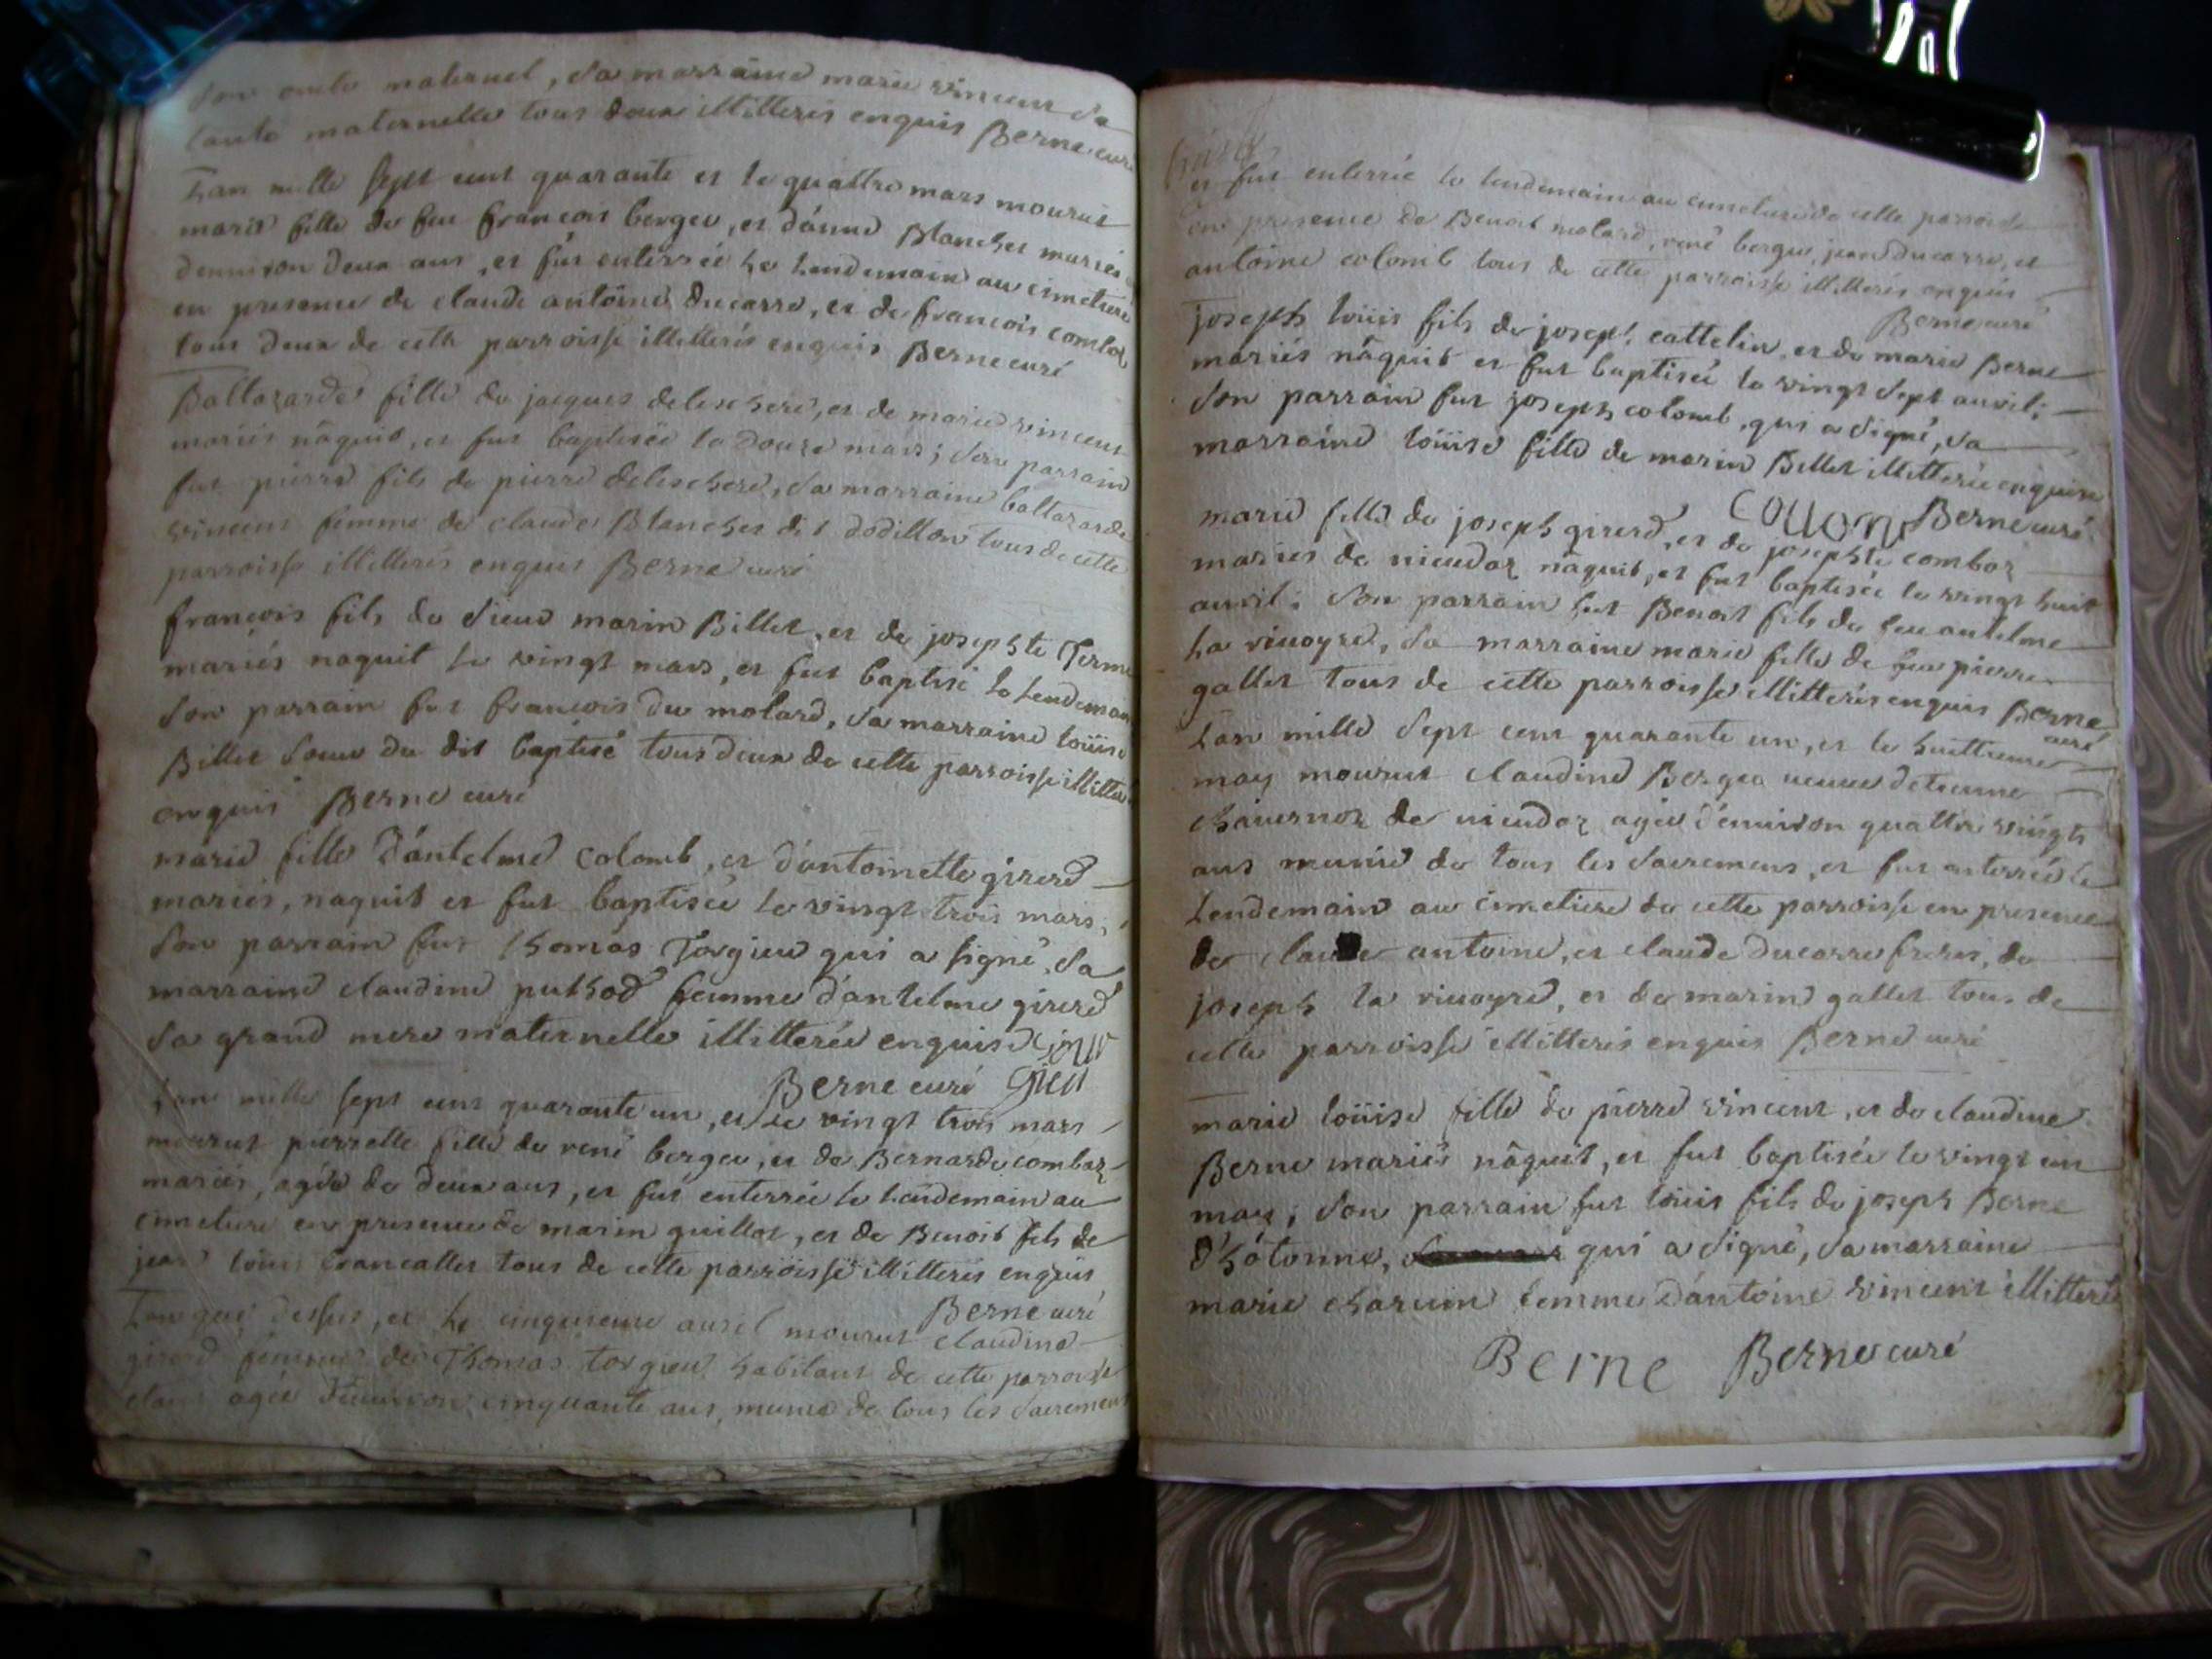 son oncle maternel, sa marraine marie vincent sa
tante maternelle tous deux illitterés enquis Berne curé
L'an mille sept cent quarante et le quattre mars mourut
marie fille de feu francois bergeu, et d'anne Blanchet mariés
d'environ deux ans, et fut enterrée le lendemain au cimetiere
en presence de claude antoine ducarre, et de francois combaz
tous deux de cette parroisse illitterés enquis Berne curé
Baltazarde fille de jacques deleschere, et de marie vincent
mariés nâquit, et fut baptisée le douze mars; son parrain
fut pierre fils de pierre deleschere, sa marraine baltazarde
vincent femme de claude Blanchet dit dodillon tous de cette
parroisse illitterés enquis Berne curé
francois fils de sieur marin Billet, et de josephte Terme
mariés naquit le vingt mars, et fut baptisé le lendemain
son parrain fut francois du molard, sa marraine loüise
Billet soeur du dit baptisé tous deux de cette parroisse illitterés
enquis Berne curé
marie fille d'antelme colomb, et d'antoinette girerd
mariés, naquit et fut baptisée le vingt trois mars;
son parrain fut thomas Torgieu qui a signé, sa
marraine claudine puthod femme d'antelme girerd
sa grand mere maternelle illitterée enquise
Berne curé gieu
L'an mille sept cent quarante un, et le vingt trois mars
mourut pierrette fille de rené bergeu, et de Bernarde combaz
mariés, agée de deux ans, et fut enterrée le lendemain au
cimetiere en presence de marin guillot, et de Benoit fils de
jean louis francallet tous de cette parroisse illitterés enquis
Berne curé
L'an que dessus, et le cinquieme avril mourut claudine
girerd femme de Thomas torgieu habitant de cette parroisse
agée d'environ cinquante ans, munie de tous les sacremens
et fut enterrée le lendemain au cimetiere de cette parroisse
en presence de Benoit molard, rené bergeu, jean ducarre, et
antoine colomb tous de cette parroisse illitterés enquis
Berne curé
joseph loüis fils de joseph cattelin, et de marie Berne
mariés nâquit et fut baptisé le vingt sept avril;
son parrain fut joseph colomb, qui a signé, sa
marraine loüise fille de marin Billet illitterée enquise
Berne curé
marie fille de joseph girerd, et de josephte combaz
mariés de vieudaz nâquit, et fut baptisée le vingt huit
avril; son parrain fut Benoit fils de feu antelme
la rivoyre, sa marraine marie fille de feu pierre
gallet tous de cette parroisse illitterés enquis Berne
curé
L'an mille sept cent quarante un, et le huittieme
may mourut claudine Bergeu veuve d'etienne
chavornoz de vieudaz agée d'environ quattre vingts
ans munie de tous les sacremens, et fut enterrée le
lendemain au cimetiere de cette parroisse en presence
de claude antoine, et claude ducarre freres, de
joseph la rivoyre, et de marin gallet tous de
cette parroisse illitterés enquis Berne curé
marie loüise fille de pierre vincent, et de claudine
Berne mariés nâquit, et fut baptisée le vingt un
may; son parrain fut loüis fils de joseph Berne
d'hôtonne, qui a signé, sa marraine
marie charvin femme d'antoine vincent illitterés
Berne Berne curé